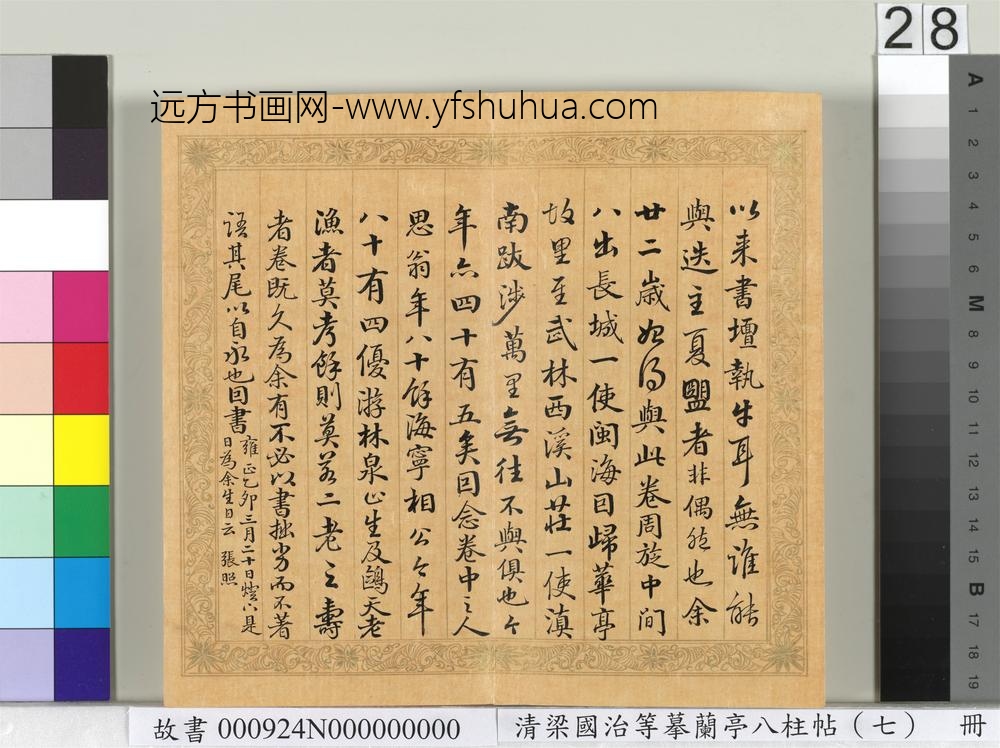 远方书画网-www.yfshuhua.com
28
以来書壇執牛耳無誰能
與迭主夏盟者非偶然也余
廿二歲始得與此卷周旋中間
八出長城一使閩海因歸華亭
故里至武林西溪山莊一使滇
南跋涉萬里無往不與俱也今
年亦四十有五矣因念卷中之人
思翁年八十餘海寧相公今年
八十有四優游林泉
漁者莫考餘則莫若二老之壽
者卷既久為余有不必以書拙劣而不著
語其尾以自永也因書
雍正乙卯三月二十日 是
日為余生日云 張照
A
1
2
3
4
5
6
M
8
9
10
11
12
13
14
15
B
17
18
19
故書 000924N000000000
清梁國治等摹蘭亭八柱帖（七） 冊